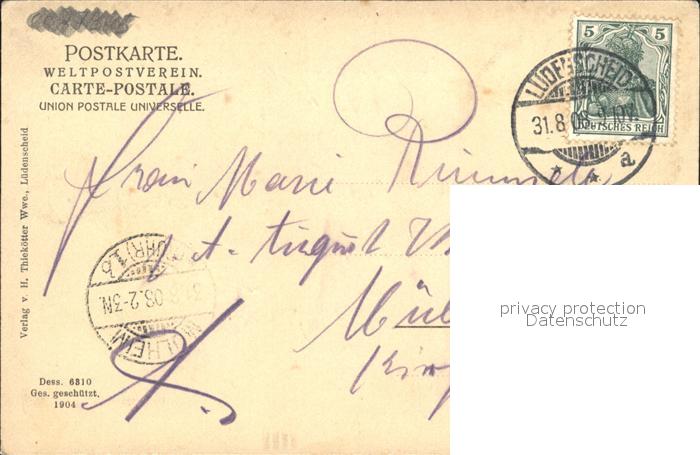 POSTKARTE.
WELTPOSTVEREIN.
CARTE-POSTALE.
UNION POSTALE UNIVERSELLE.
5 5
DEUTSCHES REICH
LÜDENSCHEID
31.8.08. N.
* * a
Frau Marie
August
Mül
Verlag v. H. Thiekötter Wwe., Lüdenscheid
MÜLHEIM (RUHR) 1.
31.8.08. 2-3N.
privacy protection
Datenschutz
Dess. 6310
Ges. geschützt.
1904